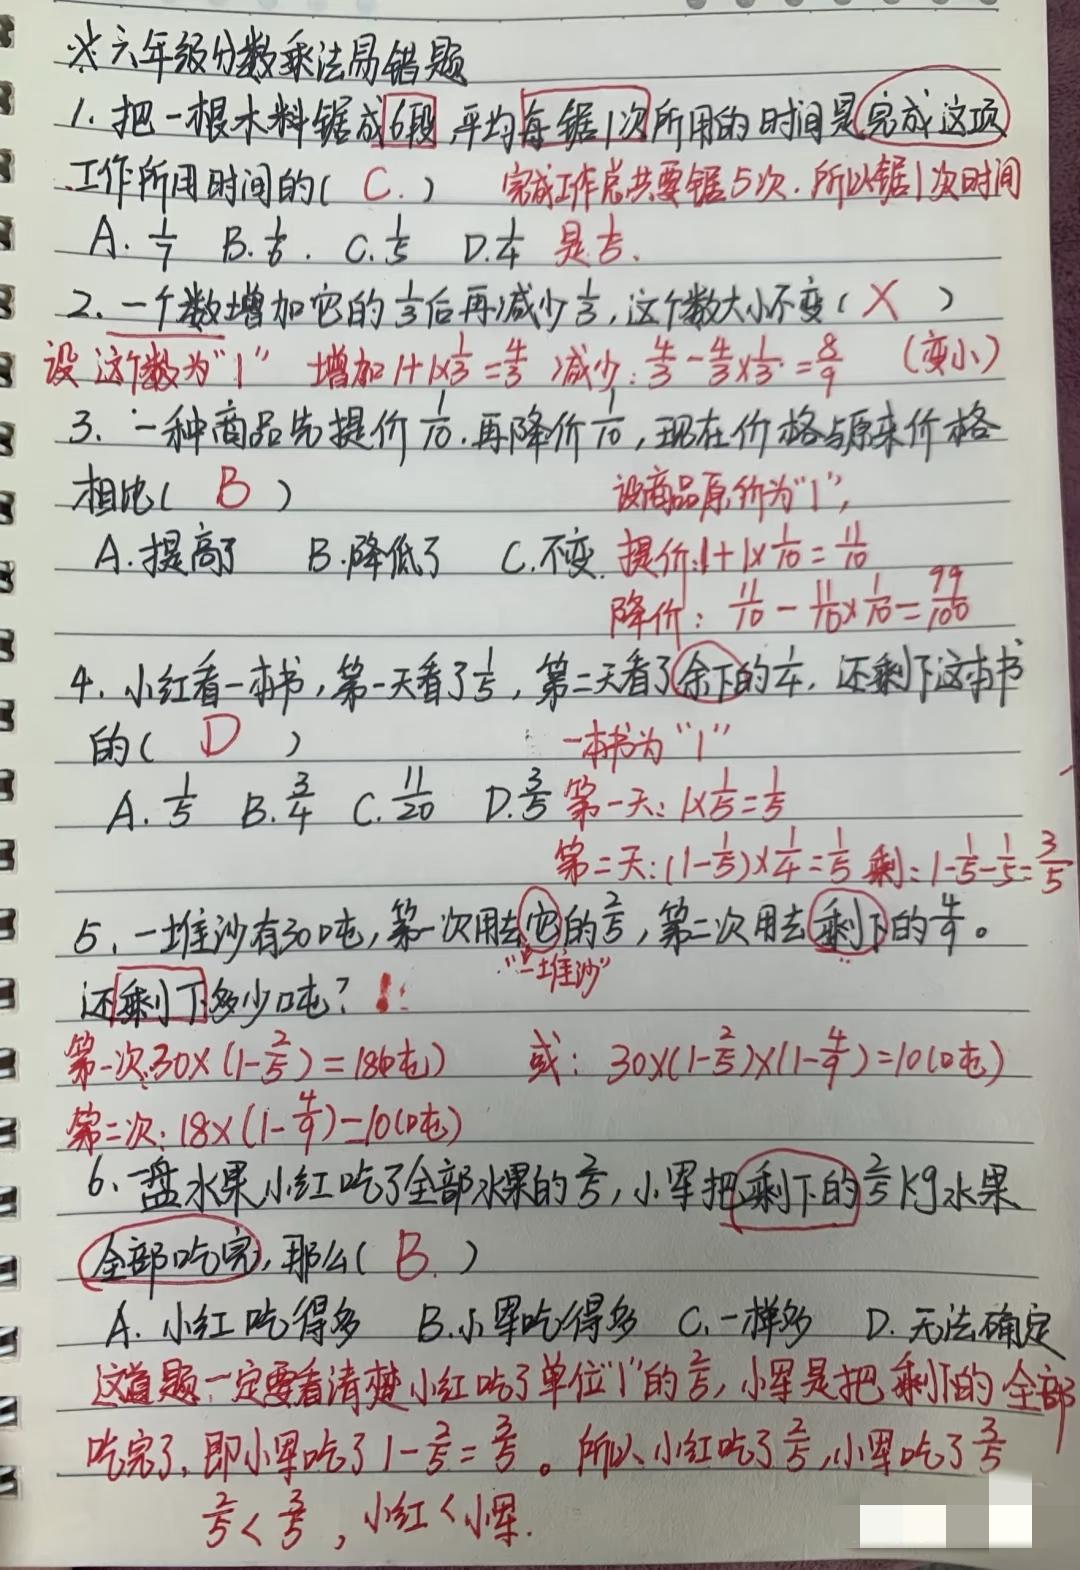 ※六年级分数乘法易错题
1. 把一根木料锯成6段,平均每锯1次所用的时间是完成这项
工作所用时间的( C. ) 完成工作总共要锯5次.所以锯1次时间
A. 1/7 B. 1/6. C. 1/5 D. 1/4 是1/5.
2. 一个数增加它的1/3后再减少1/3,这个数大小不变( X )
设这个数为"1" 增加1+1×1/3=4/3 减少:4/3-4/3×1/3=8/9 (变小)
3. 一种商品先提价1/10.再降价1/10,现在价格与原来价格
相比( B ) 设商品原价为"1",
A.提高了 B.降低了 C.不变. 提价:1+1×1/10=11/10
降价: 11/10-11/10×1/10=99/100
4. 小红看一本书,第一天看了1/5,第二天看了余下的1/4.还剩下这本书
的( D ) 一本书为"1"
A. 1/5 B. 3/4 C. 11/20 D. 3/5 第一天:1×1/5=1/5
第二天:(1-1/5)×1/4=1/5 剩:1-1/5-1/5=3/5
5. 一堆沙有30吨,第一次用去它的2/5,第二次用去剩下的4/9。
"一堆沙"
还剩下多少吨? !
第一次:30×(1-2/5)=18(吨) 或: 30×(1-2/5)×(1-4/9)=10(吨)
第二次:18×(1-4/9)=10(吨)
6. 一盘水果,小红吃了全部水果的2/5,小军把剩下的2/5kg水果
全部吃完,那么( B. )
A. 小红吃得多 B.小军吃得多 C.一样多 D.无法确定
这道题一定要看清楚小红吃了单位"1"的2/5,小军是把剩下的全部
吃完了,即小军吃了1-2/5=3/5。所以,小红吃了2/5,小军吃了3/5
2/5<3/5,小红<小军.